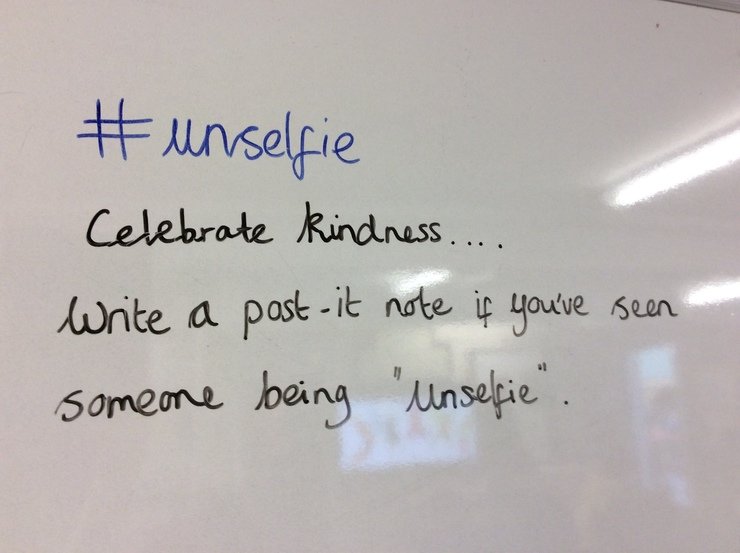 #unselfie
Celebrate kindness....
Write a post-it note if you've seen
someone being "Unselfie".